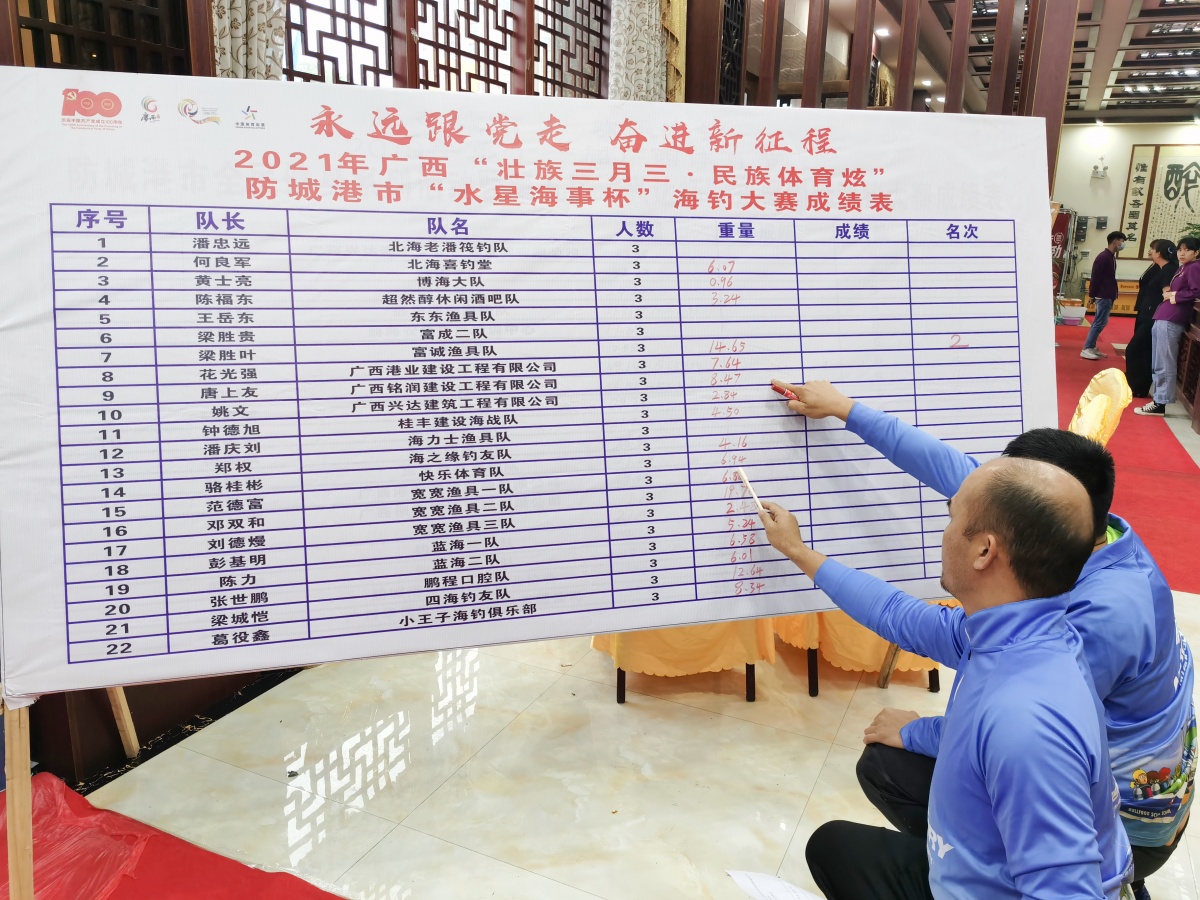 永远跟党走 奋进新征程
2021年广西“壮族三月三·民族体育炫”
防城港市“水星海事杯”海钓大赛成绩表
序号 队长 队名 人数 重量 成绩 名次
1 潘忠远 北海老潘筏钓队 3
2 何良军 北海喜钓堂 3 6.07
3 黄士亮 博海大队 3 0.96
4 陈福东 超然醇休闲酒吧队 3 3.24
5 王岳东 东东渔具队 3
6 梁胜贵 富成二队 3
7 梁胜叶 富诚渔具队 3 14.65 2
8 花光强 广西港业建设工程有限公司 3 7.64
9 唐上友 广西铭润建设工程有限公司 3 8.47
10 姚文 广西兴达建筑工程有限公司 3 2.84
11 钟德旭 桂丰建设海战队 3 4.50
12 潘庆刘 海力士渔具队 3
13 郑权 海之缘钓友队 3 4.16
14 骆桂彬 快乐体育队 3 6.94
15 范德富 宽宽渔具一队 3
16 邓双和 宽宽渔具二队 3
17 刘德熳 宽宽渔具三队 3
18 彭基明 蓝海一队 3 5.24
19 陈力 蓝海二队 3 6.58
20 张世鹏 鹏程口腔队 3 6.01
21 梁城恺 四海钓友队 3 12.64
22 葛役鑫 小王子海钓俱乐部 3 8.34